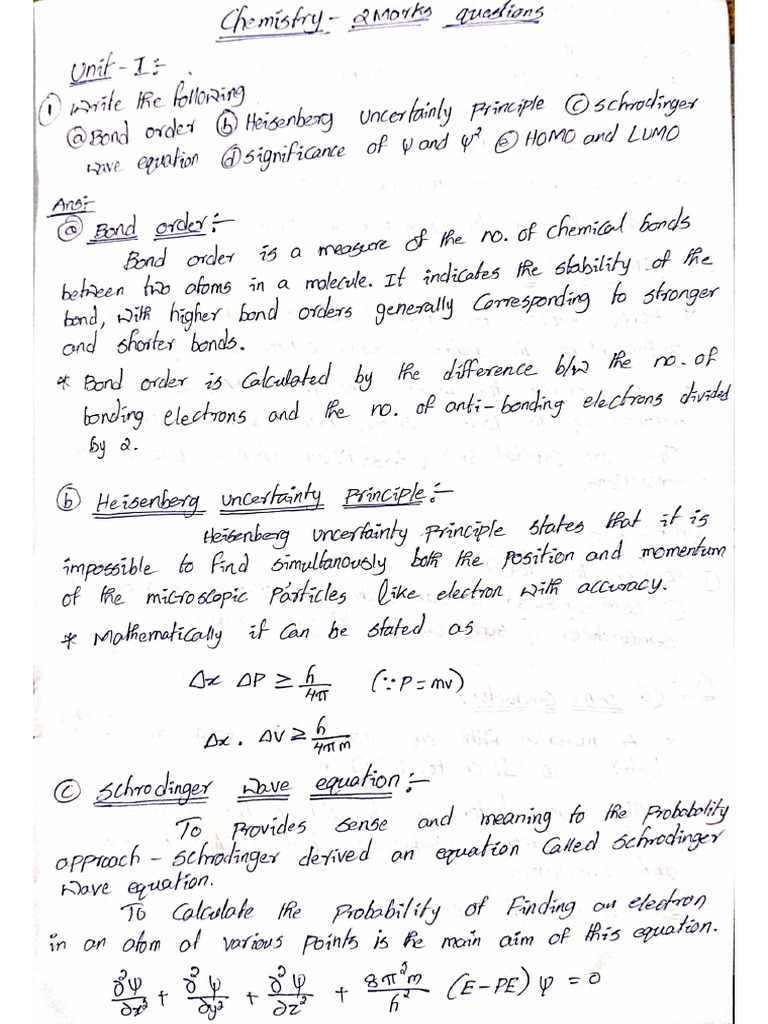 Chemistry - 2Marks questions
Unit - I :-
① Write the following
ⓐ Bond order ⓑ Heisenberg Uncertainty Principle ⓒ Schrodinger
wave equation ⓓ Significance of ψ and ψ² ⓔ HOMO and LUMO
Ans:-
ⓐ Bond order :-
Bond order is a measure of the no. of chemical bonds
between two atoms in a molecule. It indicates the stability of the
bond, with higher bond orders generally Corresponding to stronger
and shorter bonds.
* Bond order is Calculated by the difference b/w the no. of
bonding electrons and the no. of anti-bonding electrons divided
by 2.
ⓑ Heisenberg uncertainty Principle :-
Heisenberg uncertainty Principle states that it is
impossible to find simultanously both the position and momentum
of the microscopic Particles like electron with accuracy.
* Mathematically it Can be stated as
Δx ΔP ≥ h/4π (∵ P = mv)
Δx . ΔV ≥ h/4πm
ⓒ Schrodinger Wave equation :-
To Provides sense and meaning to the Probabality
approach - Schrodinger derived an equation Called Schrodinger
Wave equation.
To Calculate the Probability of Finding an electron
in an atom at various Points is the main aim of this equation.
∂²ψ/∂x² + ∂²ψ/∂y² + ∂²ψ/∂z² + 8π²m/h² (E-PE) ψ = 0